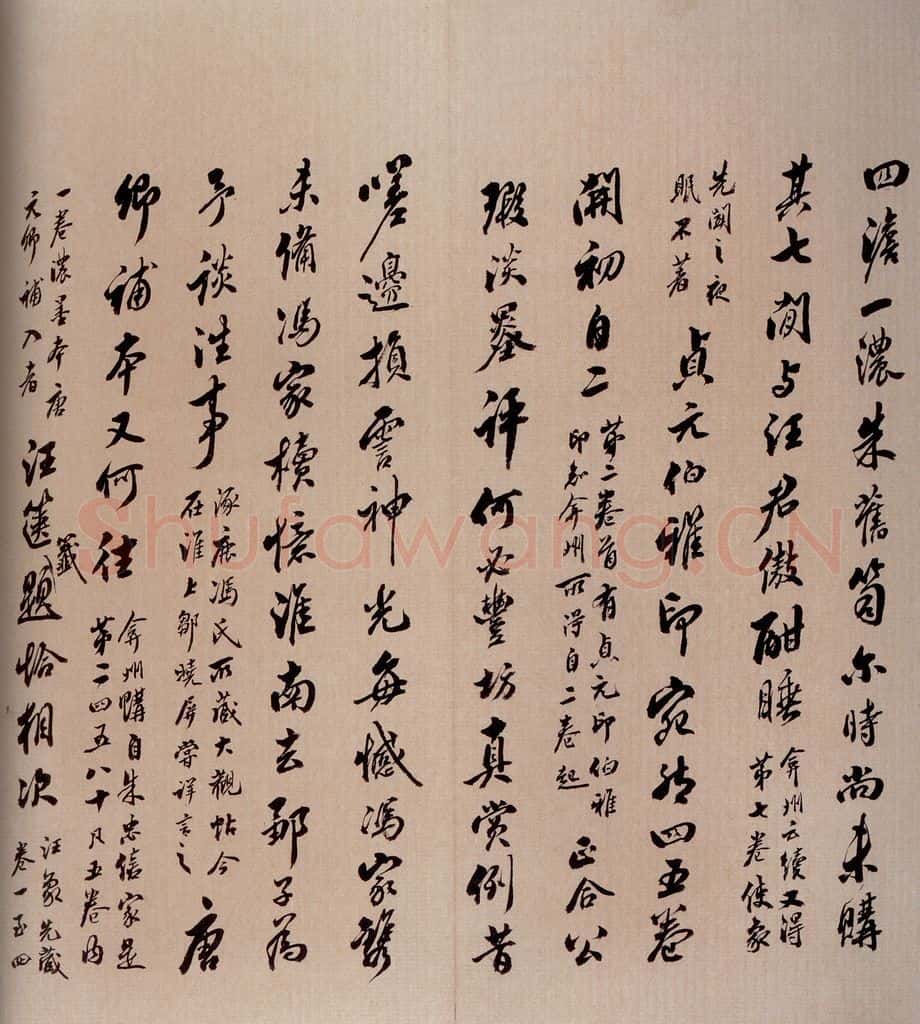 四澹一濃朱舊笥尔時尚未購
其七閒与汪君傲酣睡 弇州云續又得
第七卷使象
先闻之夜
眠不著 貞元伯雅印宛然四五卷
開初自二 第二卷首有貞元印伯雅
印知弇州所得自二卷起 正合公
瑕淡墨評何必豐坊真賞例昔
嗟邊損雲神光每憾馮家雋
未備馮家櫝憶淮南去鄒子為
予談往事 涿鹿馮氏所藏大觀帖今
在淮上鄒曉屏嘗詳言之 唐
卿補本又何往 弇州購自朱忠僖家是
第二四五八十凡五卷內
一卷濃墨本唐
元卿補入者 汪籤題恰相次 汪象先藏
卷一至四
Shufawang.CN